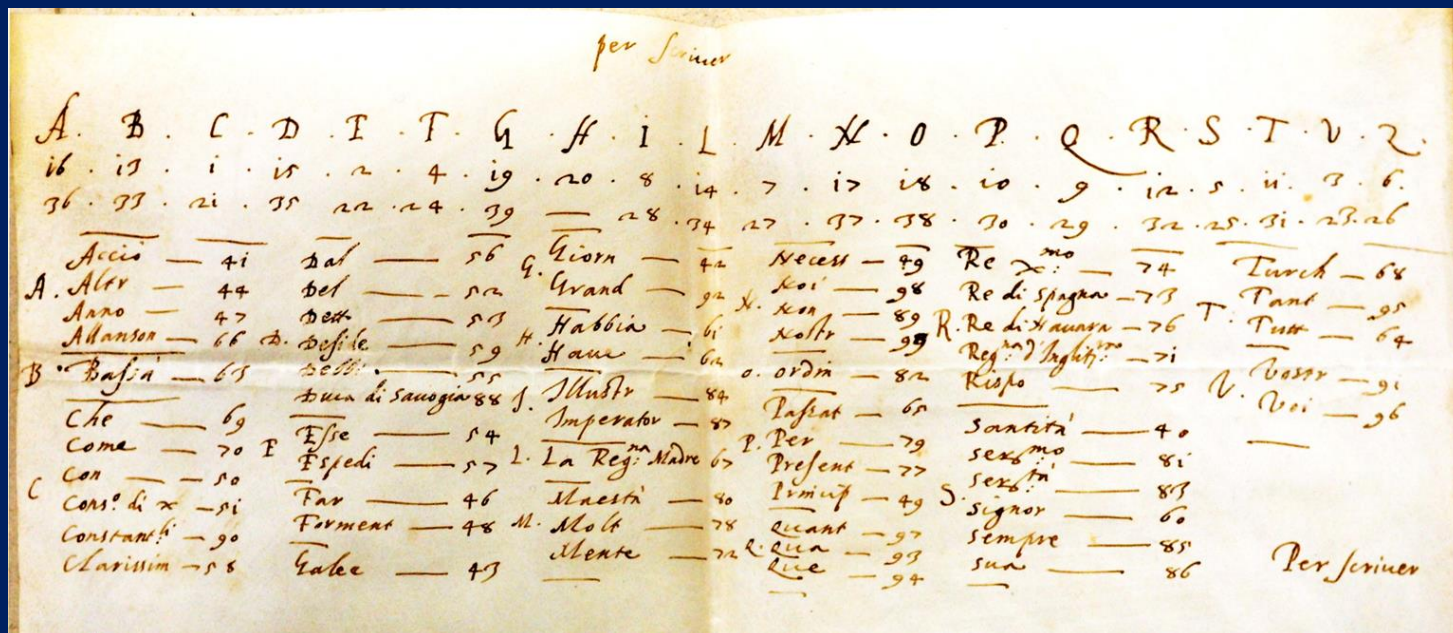 per scriuer
A . B . C . D . E . F . G . H . I . L . M . N . O . P . Q . R . S . T . V . Z .
i6 . i3 . i . i5 . 2 . 4 . i9 . 20 . 8 . i4 . 7 . i7 . i8 . i0 . 9 . i2 . 5 . ii . 3 . 6 .
36 . 33 . 2i . 35 . 22 . 24 . 39 . — . 28 . 34 . 27 . 37 . 38 . 30 . 29 . 32 . 25 . 3i . 23 . 26
Accio — 4i
A. Altr — 44
Anno — 47
Allanson — 66
B. Bassà — 63
Che — 69
Come — 70
Con — 50
C Cons.o di x — 5i
Constant.li — 90
Clarissim — 58
Dal — 56
Del — 52
Dett — 53
D. Desi le — 59
Dell: — 55
Duca di Sauogia 88
E Esse — 54
Espedi — 57
Far — 46
Forment — 48
Galee — 43
G. Giorn — 42
Grand — 92
H. Habbia — 6i
Haue — 62
I. Illustr — 84
Imperator — 87
L. La Reg:na Madre 67
Maestà — 80
M. Molt — 78
Mente — 72
Necess — 49
Noi — 98
N. Non — 89
Nostr — 99
O. Ordin — 82
Passat — 65
P. Per — 79
Present — 77
Princip — 49
Quant — 97
Q. Qua — 93
Que — 94
Re xmo — 74
Re di Spagna — 73
R. Re di Nauara — 76
Reg:na d'Inghil:rra — 7i
Rispo — 75
Santità — 40
Sermo — 8i
Sertà — 83
S. Signor — 60
Sempre — 85
sua — 86
Turch — 68
T. Tant — 95
Tutt — 64
V. Vostr — 91
Voi — 96
Per scriuer